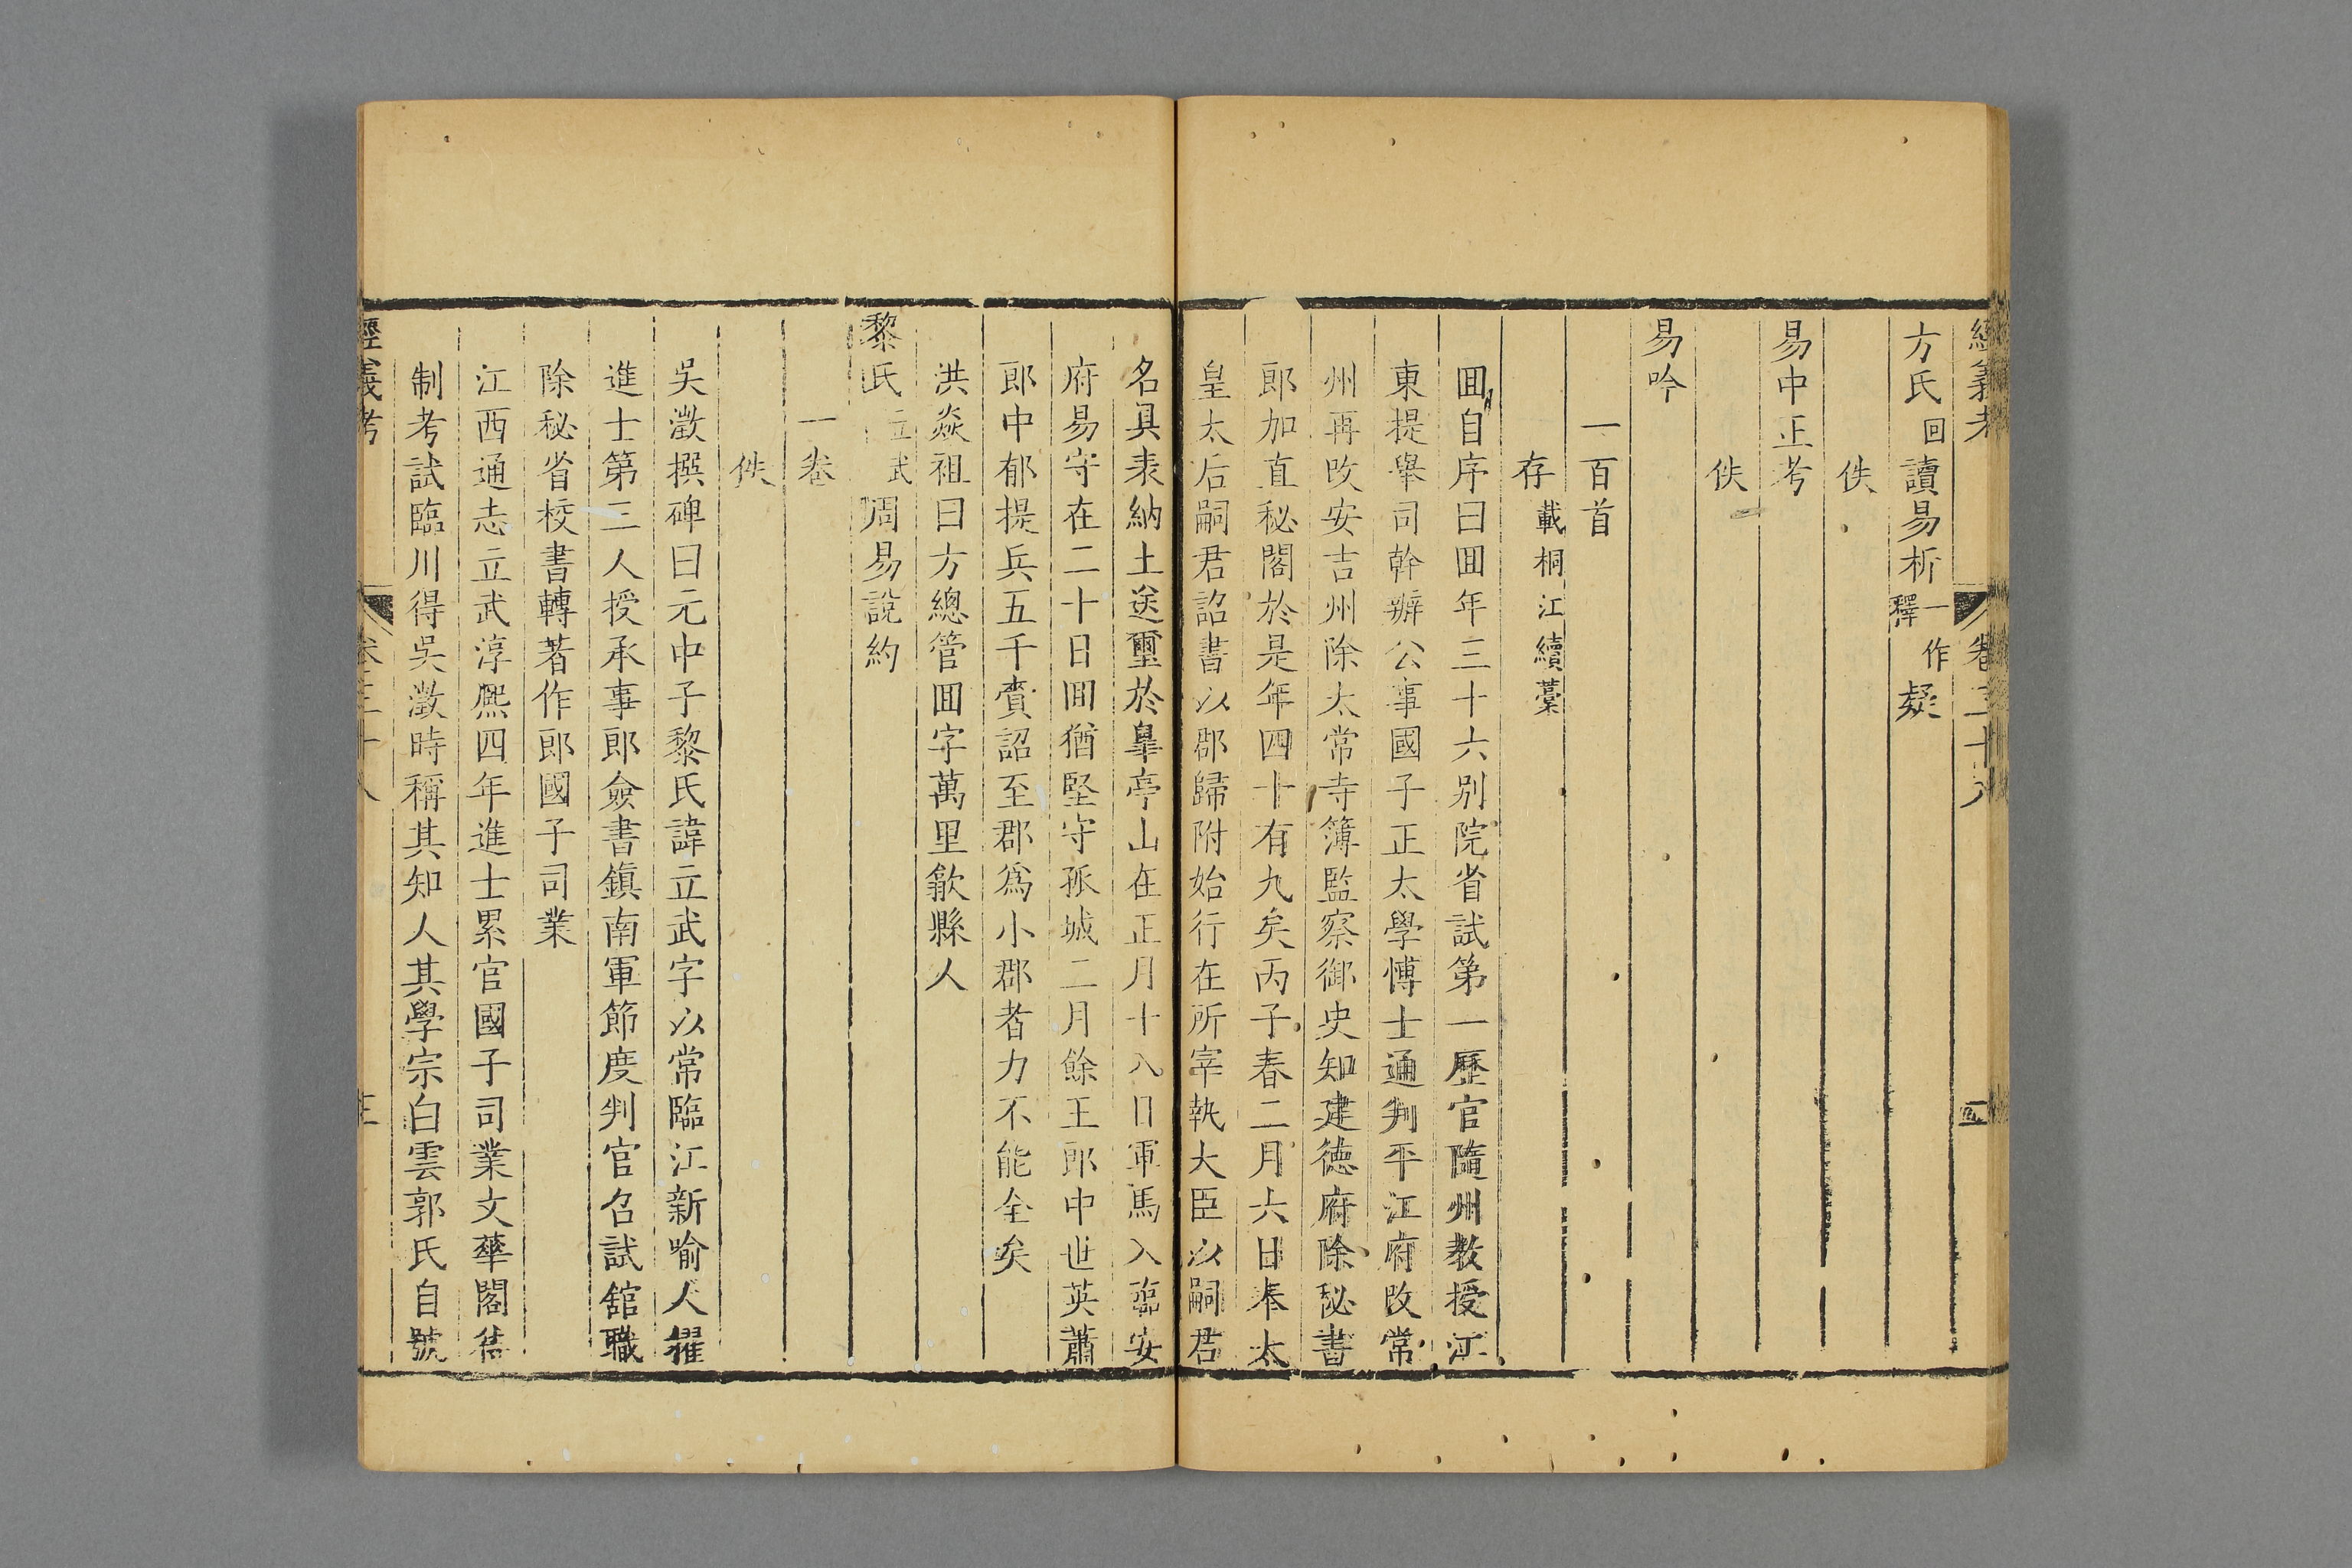 經義考 卷三十八 四
方氏回讀易析一作釋疑
佚
易中正考
佚
易吟
一百首
存載桐江續藁
囬自序曰囬年三十六别院省試第一歷官隨州教授江
東提舉司幹辦公事國子正太學博士通判平江府改常
州再改安吉州除太常寺簿監察御史知建德府除秘書
郎加直秘閣於是年四十有九矣丙子春二月六日奉太
皇太后嗣君詔書以郡歸附始行在所宰執大臣以嗣君
名具表納土送璽於臯亭山在正月十八日軍馬入臨安
府易守在二十日囬猶堅守孤城二月餘王郎中世英蕭
郎中郁提兵五千賫詔至郡爲小郡者力不能全矣
洪焱祖曰方總管囬字萬里歙縣人
黎氏立武周易說約
一卷
佚
吳澂撰碑曰元中子黎氏諱立武字以常臨江新喻人擢
進士第三人授承事郎僉書鎮南軍節度判官召試舘職
除秘省校書轉著作郎國子司業
江西通志立武淳熈四年進士累官國子司業文華閣待
制考試臨川得吳澂時稱其知人其學宗白雲郭氏自號
經義考 卷三十八 五